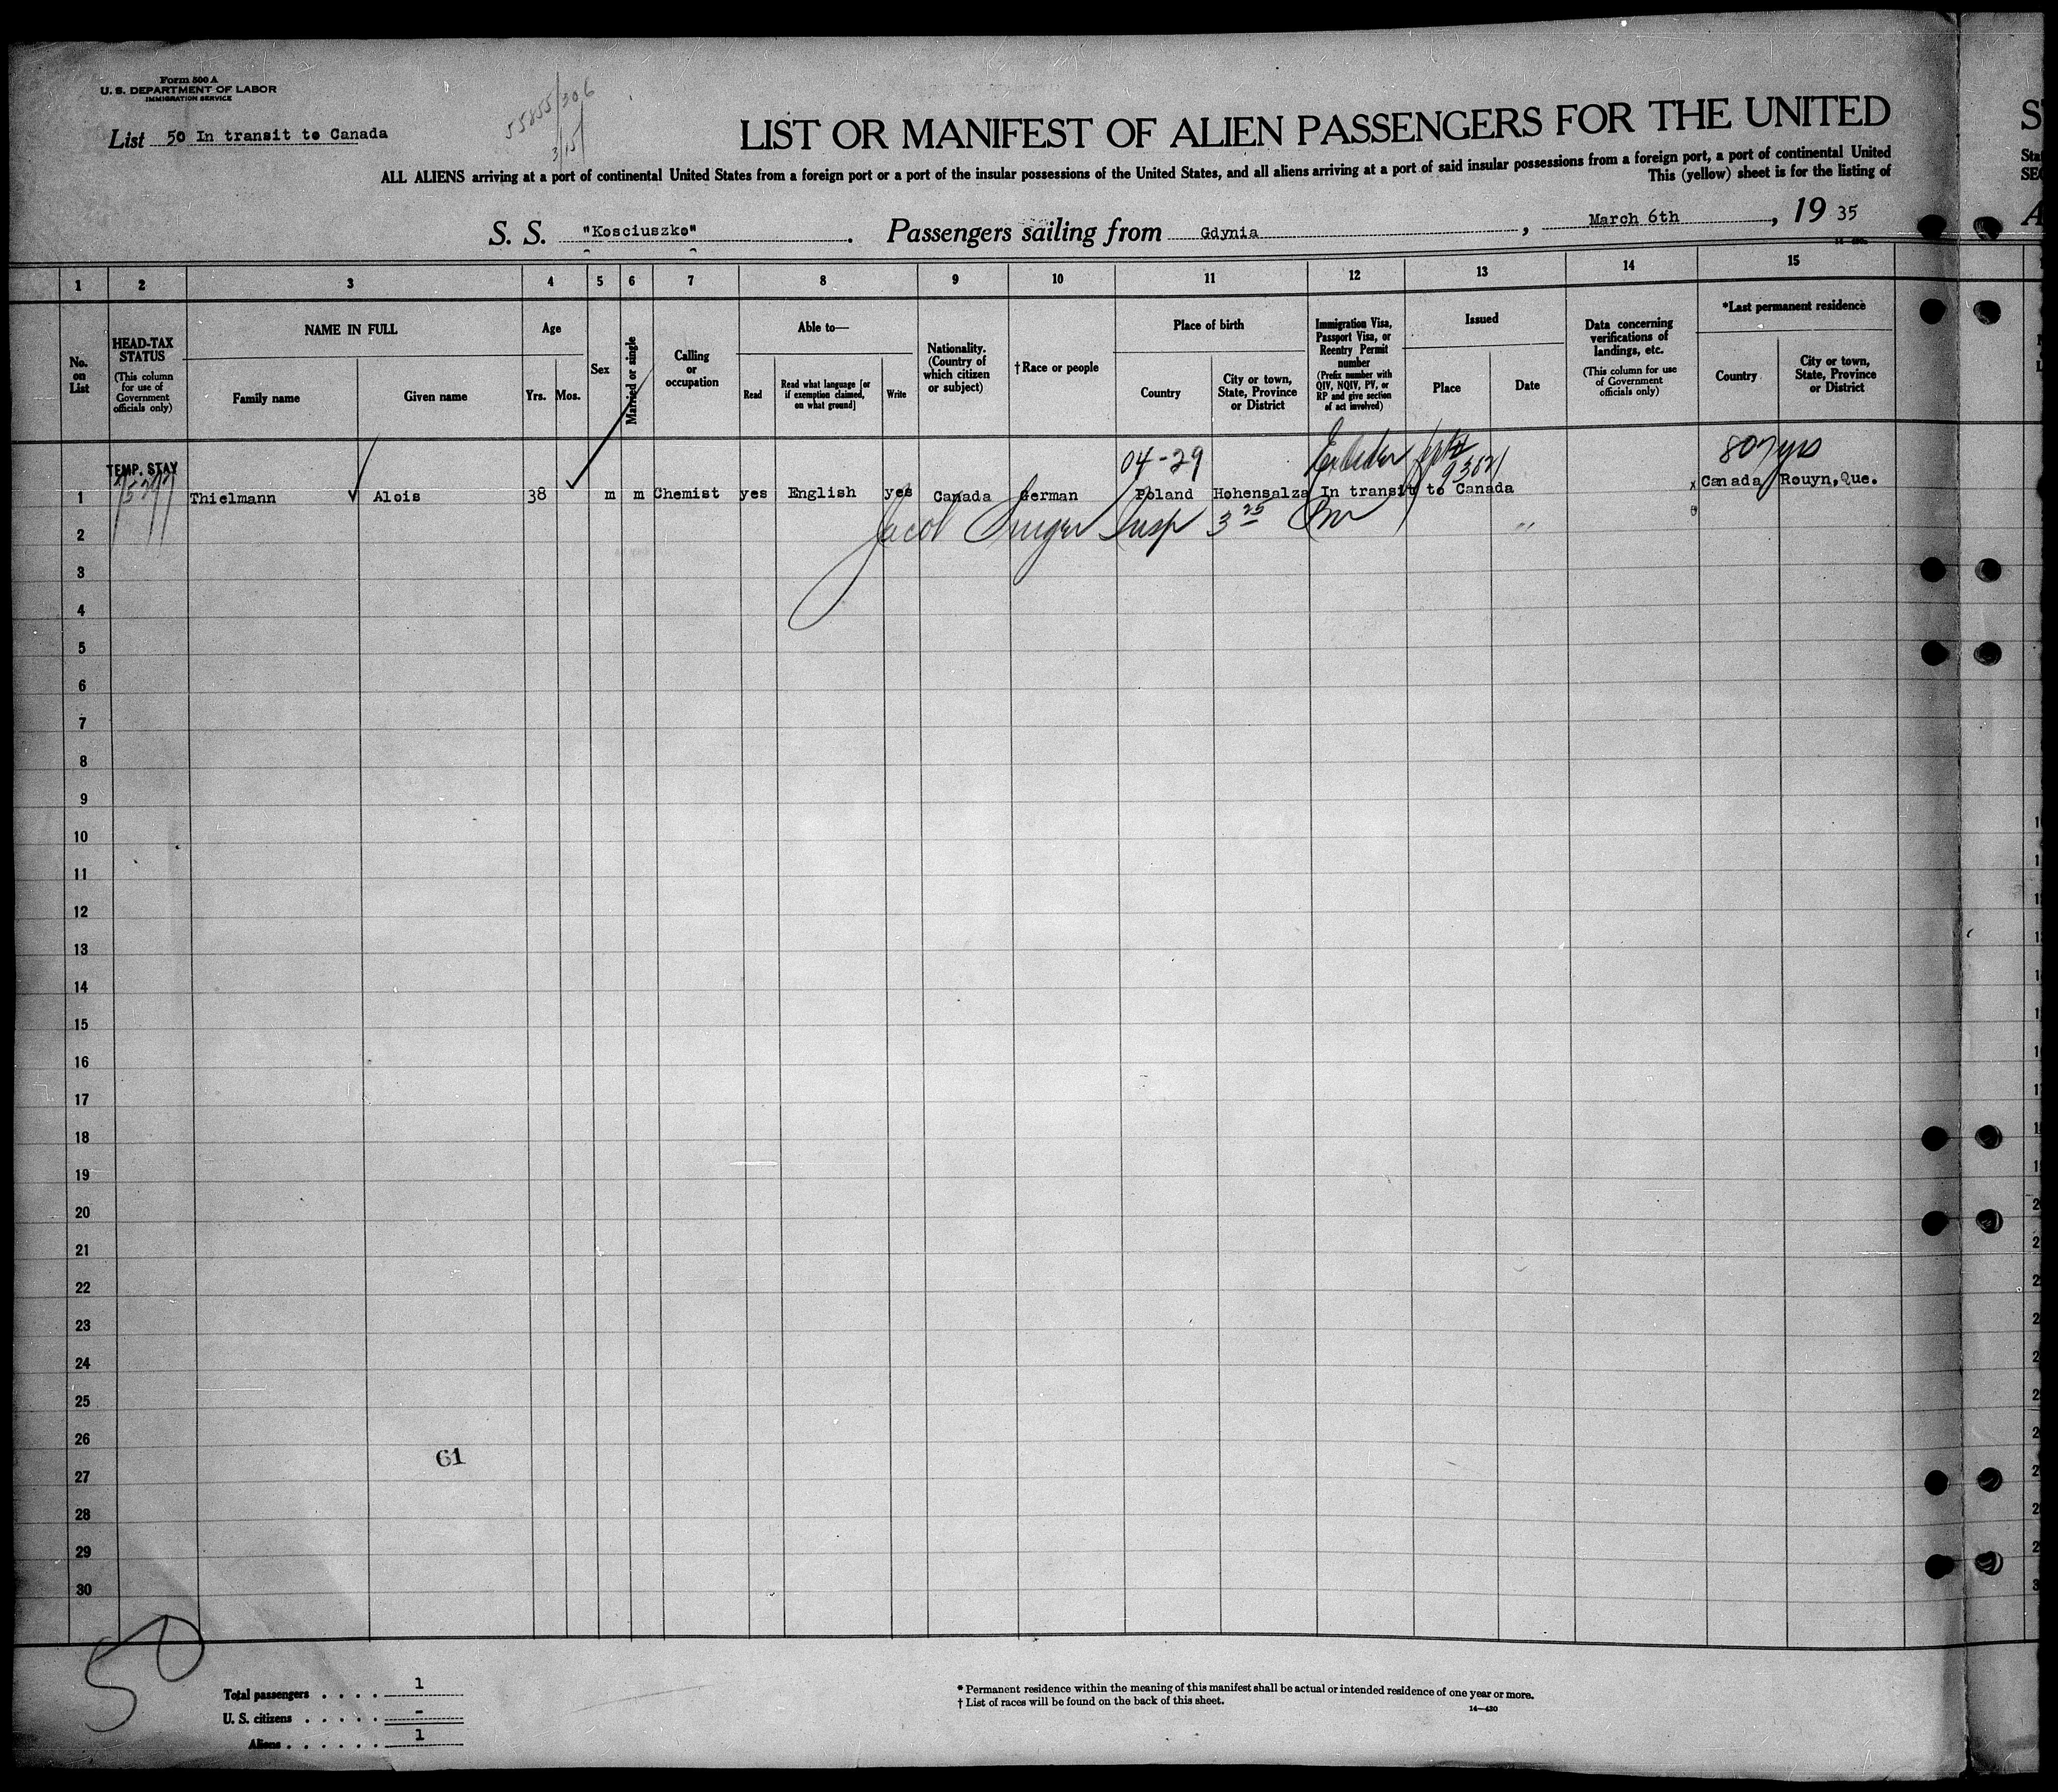 Form 500 A
U. S. DEPARTMENT OF LABOR
IMMIGRATION SERVICE
List 50 In transit to Canada
55855/306
3/15
LIST OR MANIFEST OF ALIEN PASSENGERS FOR THE UNITED
ALL ALIENS arriving at a port of continental United States from a foreign port or a port of the insular possessions of the United States, and all aliens arriving at a port of said insular possessions from a foreign port, a port of continental United
This (yellow) sheet is for the listing of
S. S. "Kosciuszko". Passengers sailing from Gdynia, March 6th, 19 35
1 2 3 4 5 6 7 8 9 10 11 12 13 14 15
No. on List
HEAD-TAX STATUS
(This column for use of Government officials only)
NAME IN FULL
Family name
Given name
Age
Yrs. Mos.
Sex
Married or single
Calling or occupation
Able to—
Read
Read what language [or if exemption claimed, on what ground]
Write
Nationality. (Country of which citizen or subject)
†Race or people
Place of birth
Country
City or town, State, Province or District
Immigration Visa, Passport Visa, or Reentry Permit number
(Prefix number with QIV, NQIV, PV, or RP and give section of act involved)
Issued
Place
Date
Data concerning verifications of landings, etc.
(This column for use of Government officials only)
*Last permanent residence
Country
City or town, State, Province or District
04-29
TEMP. STAY
1 Thielmann Alois 38 m m Chemist yes English yes Canada German Poland Hohensalza In transit to Canada x Canada Rouyn, Que.
Jacob Insp 3 25
2
3
4
5
6
7
8
9
10
11
12
13
14
15
16
17
18
19
20
21
22
23
24
25
26
61
27
28
29
30
50
Total passengers . . . . 1
U. S. citizens . . . . . -
Aliens . . . . . . 1
* Permanent residence within the meaning of this manifest shall be actual or intended residence of one year or more.
† List of races will be found on the back of this sheet.
14—430